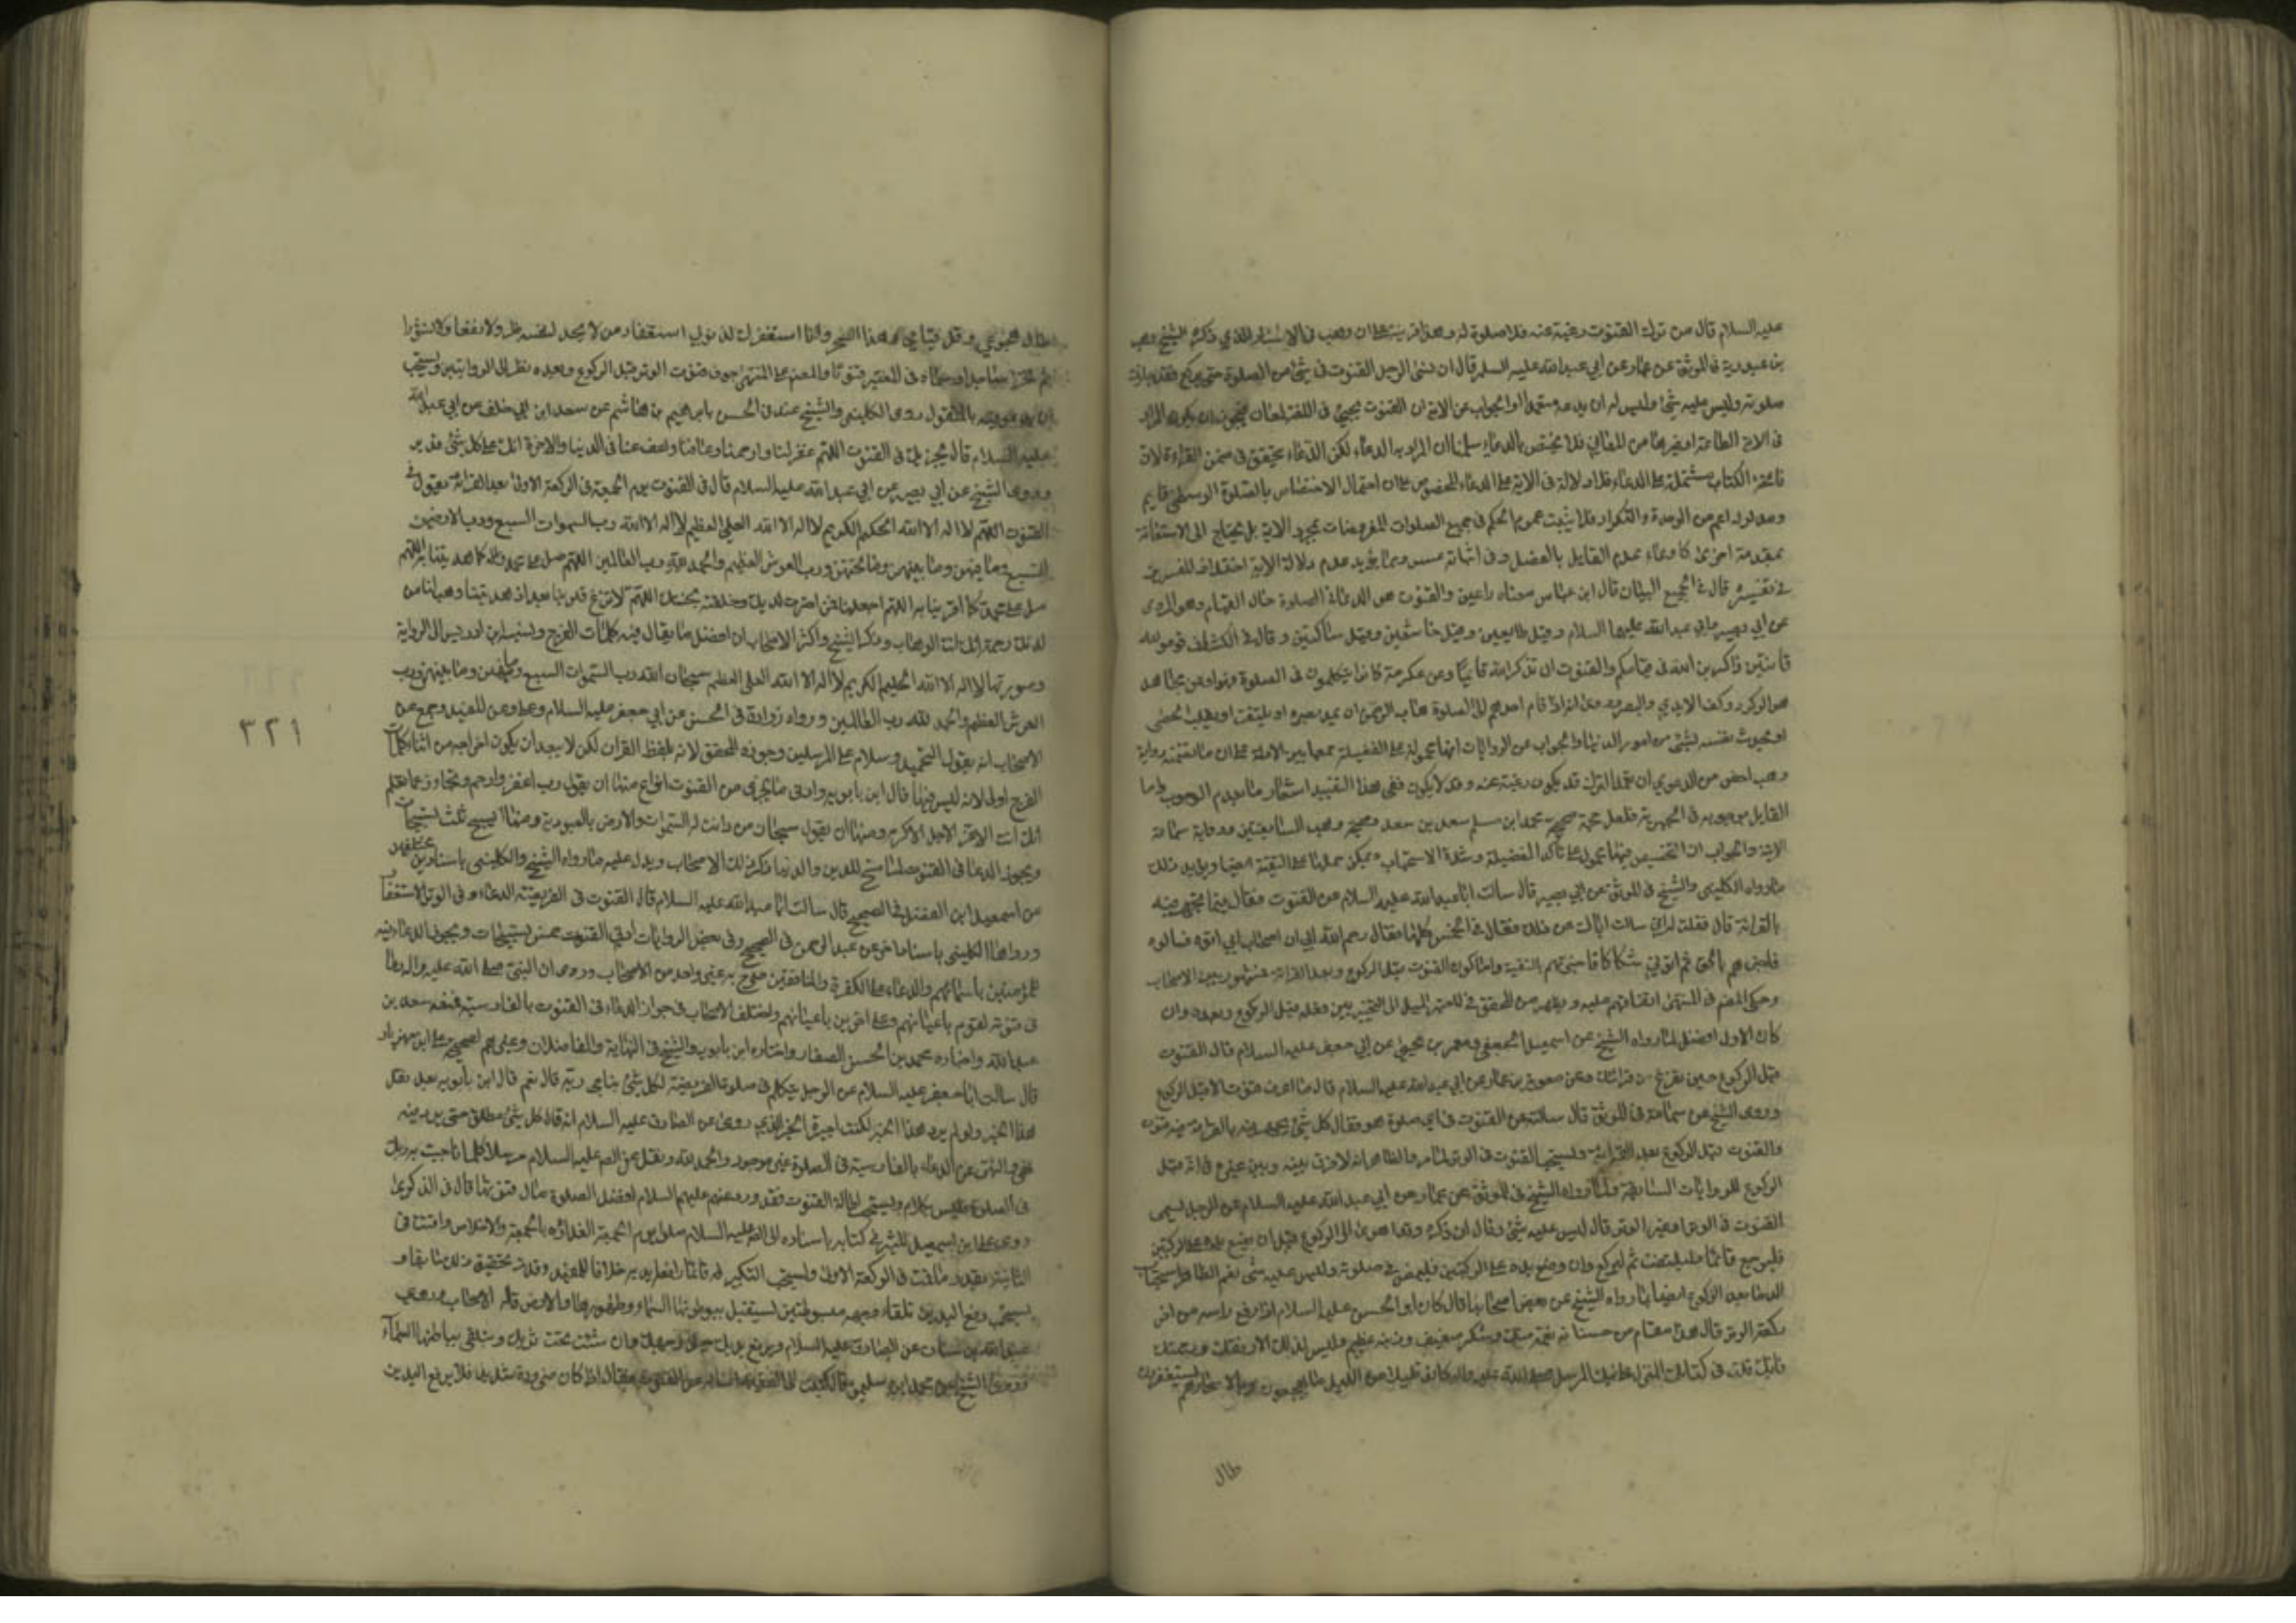 عليه السلام قال من ترك القنوت رغبة عنه فلا صلوة له وهذا قرينة على ان وهب في الاسناد الذي ذكره الشيخ وهب
بن عبد ربه في الموثق عن عمار عن ابي عبد الله عليه السلم قال ان نسى الرجل القنوت في شئ من الصلوة حتى يركع فقد جازت
صلوته وليس عليه شئ وليس له ان يدعه متعمدا والجواب عن الاية ان القنوت يجيئ في اللغة لمعان فيجوز ان يكون المراد
في الاية الطاعة او غيرها من المعاني فلا يختص بالدعاء سلمنا ان المراد به الدعاء لكن الدعاء يتحقق في ضمن القراءة لان
فاتحة الكتاب مشتملة على الدعاء فلا دلالة في الاية على الدعاء المخصوص على ان احتمال الاختصاص بالصلوة الوسطى قايم
ومدلوله اعم من الوحدة والتكرار فلا يثبت عموم الحكم في جميع الصلوات المفروضات بمجرد الاية بل يحتاج الى الاستعانة
بمقدمة اخرى كادعاء عدم القايل بالفصل وفي اثباته عسر ومما يؤيد عدم دلالة الاية اختلاف المفسرين
في تفسيره قال في مجمع البيان قال ابن عباس معناه داعين والقنوت هو الدعاء في الصلوة حال القيام وهو المروى
عن ابي جعفر وابي عبد الله عليهما السلام وقيل طايعين وقيل خاشعين وقيل ساكتين وقال في الكشاف قوموا لله
قانتين ذاكرين الله في قيامكم والقنوت ان تذكر الله قايما وعن عكرمة كانوا يتكلمون في الصلوة فنهوا وعن مجاهد
هو الركود وكف الايدي والبصر وروى انه اذا قام احدهم الى الصلوة هاب الرحمن ان يمد بصره او يلتفت او يقلب الحصى
او يحدث نفسه بشئ من امور الدنيا والجواب عن الروايات انها محمولة على الفضيلة جمعا بين الادلة على ان ما تضمنته رواية
وهب اخص من الدعوى ان عمد الترك قد يكون رغبة عنه وقد لا يكون ففي هذا التقييد اشعار ما بعدم الوجوب واما
القايل بوجوبه في الجهرية فلعل حجته صحيحة محمد ابن مسلم سعد بن سعد وصحيحة وهب السابقتين ورواية سماعة
الاتية والجواب ان التخصيص فيها محمول على تأكد الفضيلة وشدة الاستحباب ويمكن حملها على التقية ايضا ويؤيد ذلك
ما رواه الكليني والشيخ في الموثق عن ابي بصير قال سالت ابا عبد الله عليه السلام عن القنوت فقال فيما يجهر فيه
بالقراءة قال فقلت له اني سالت اباك عن ذلك فقال في الخمس كلها فقال رحم الله ابي ان اصحاب ابي اتوه فسالوه
فاخبرهم بالحق ثم اتوني شكاكا فافتيتهم بالتقية واما كون القنوت قبل الركوع وبعد القراءة فمشهور بين الاصحاب
وحكى المصنف في المنتهى اتفاقهم عليه ويظهر من المحقق في المعتبر الميل الى التخيير بين فعله قبل الركوع وبعده وان
كان الاول افضل لما رواه الشيخ عن اسمعيل الجعفي ومعمر بن يحيى عن ابي جعفر عليه السلام قال القنوت
قبل الركوع حين تفرغ من قراءتك وعن معوية بن عمار عن ابي عبد الله عليه السلام قال ما اعرف قنوتا الا قبل الركوع
وروى الشيخ عن سماعة في الموثق قال سالته عن القنوت في اي صلوة هو فقال كل شئ يجهر فيه بالقراءة فيه قنوت
والقنوت قبل الركوع بعد القراءة ويستحب القنوت في الوتر لما مر والظاهر انه لا فرق بينه وبين غيره في انه قبل
الركوع للروايات السابقة ولما رواه الشيخ في الموثق عن عمار عن ابي عبد الله عليه السلام عن الرجل نسى
القنوت في الوتر او غير الوتر قال ليس عليه شئ وقال ان ذكره وقد اهوى الى الركوع قبل ان يضع يديه على الركبتين
فليرجع قائما وليقنت ثم ليركع وان وضع يده على الركبتين فليمض في صلوته وليس عليه شئ نعم الظاهر استحباب
الدعاء بعد الركوع ايضا لما رواه الشيخ عن بعض اصحابنا قال كان ابو الحسن عليه السلام اذا رفع راسه من اخر
ركعة الوتر قال هذا مقام من حسناته نعمة منك وشكره ضعيف وذنبه عظيم وليس لذلك الا رفقك ورحمتك
فانك قلت في كتابك المنزل على نبيك المرسل صلى الله عليه واله كانوا قليلا من الليل ما يهجعون وبالاسحار هم يستغفرون
طال
طال هجوعي وقل قيامي وهذا السحر وانا استغفرك لذنوبي استغفار من لا يجد لنفسه ضرا ولا نفعا ولا نشورا
ثم يخر ساجدا وسماه في المعتبر قنوتا والمصنف في المنتهى جوز قنوت الوتر قبل الركوع وبعده نظرا الى الروايتين ويستحب
ان يدعو فيه بالمنقول روى الكليني والشيخ عنه في الحسن بابرهيم بن هاشم عن سعد ابن ابي خلف عن ابي عبد الله
عليه السلام قال يجزيك في القنوت اللهم اغفر لنا وارحمنا وعافنا واعف عنا في الدنيا والاخرة انك على كل شئ قدير
وروى الشيخ عن ابي بصير عن ابي عبد الله عليه السلام قال في القنوت يوم الجمعة في الركعة الاولى بعد القراءة تقول في
القنوت اللهم لا اله الا الله الحكيم الكريم لا اله الا الله العلي العظيم لا اله الا الله رب السموات السبع ورب الارضين
السبع وما فيهن وما بينهن وما تحتهن ورب العرش العظيم والحمد لله رب العالمين اللهم صل على محمد واله كما هديتنا به اللهم
صل على محمد كما اكرمتنا به اللهم اجعلنا ممن اخترت لدينك وخلقته لجنتك اللهم لا تزغ قلوبنا بعد اذ هديتنا وهب لنا من
لدنك رحمة انك انت الوهاب وذكر الشيخ واكثر الاصحاب ان افضل ما يقال فيه كلمات الفرج ونسبه ابن ادريس الى الرواية
وصورتها لا اله الا الله الحليم الكريم لا اله الا الله العلي العظيم سبحان الله رب السموات السبع وما فيهن وما بينهن ورب
العرش العظيم والحمد لله رب العالمين ورواه زرارة في الحسن عن ابي جعفر عليه السلام وحكى عن المفيد وجمع من
الاصحاب انه يقول قبل التحميد وسلام على المرسلين وجوزه المحقق لانه بلفظ القران لكن لا يبعد ان يكون اخراجه من اثناء كلمات
الفرج اولى لانه ليس فيها قال ابن بابويه وادنى ما يجزي من القنوت انواع منها ان يقول رب اغفر وارحم وتجاوز عما تعلم
انك انت الاعز الاجل الاكرم ومنها ان يقول سبحان من دانت له السموات والارض بالعبودية ومنها ان يسبح ثلث تسبيحات
ويجوز الدعاء في القنوت بما سنح للدين والدنيا ذكر ذلك الاصحاب ويدل عليه ما رواه الشيخ والكليني باسنادين مختلفين
عن اسمعيل ابن الفضل في الصحيح قال سالت ابا عبد الله عليه السلام قال القنوت في الفريضة الدعاء وفي الوتر الاستغفار
ورواها الكليني باسناده عن عبد الرحمن في الصحيح وفي بعض الروايات ادنى القنوت خمس تسبيحات ويجوز الدعاء فيه
للمؤمنين باسمائهم والدعاء على الكفرة والمنافقين صرح به غير واحد من الاصحاب وروى ان النبي صلى الله عليه واله دعا
في قنوته لقوم باعيانهم وعلى اخرين باعيانهم واختلف الاصحاب في جواز الدعاء في القنوت بالفارسية فمنعه سعد بن
عبد الله واجازه محمد بن الحسن الصفار واختاره ابن بابويه والشيخ في النهاية والفاضلان وغيرهم لصحيحة على ابن مهزيار
قال سالت ابا جعفر عليه السلام عن الرجل يتكلم في صلوة الفريضة لكل شئ يناجي ربه قال نعم قال ابن بابويه بعد نقل
هذا الخبر ولو لم يرد هذا الخبر لكنت اجيزه بالخبر الذي روى عن الصادق عليه السلام انه قال كل شئ مطلق حتى يرد فيه
نهي والنهى عن الدعاء بالفارسية في الصلوة غير موجود والحمد لله ونقل عن الصادق عليه السلام مرسلا كلما ناجيت به ربك
في الصلوة فليس بكلام ويستحب اطالة القنوت فقد ورد عنهم عليهم السلام افضل الصلوة ما طال قنوتها قال في الذكرى
روى على ابن اسمعيل الميثمي في كتابه باسناده الى الصادق عليه السلام صلى يوم الجمعة الغداة بالجمعة والاخلاص وقنت في
الثانية بقدر ما قنت في الركعة الاولى ويستحب التكبير له قائما رافعا يديه خلافا للمفيد وقد مر تحقيق ذلك سابقا و
يستحب رفع اليدين تلقاء وجهه مبسوطتين يستقبل ببطونهما السماء وظهورهما الارض قاله الاصحاب وروى
عبد الله بن سنان عن الصادق عليه السلام وترفع يديك حيال وجهك وان شئت تحت ثوبك وتتلقى بباطنهما السماء